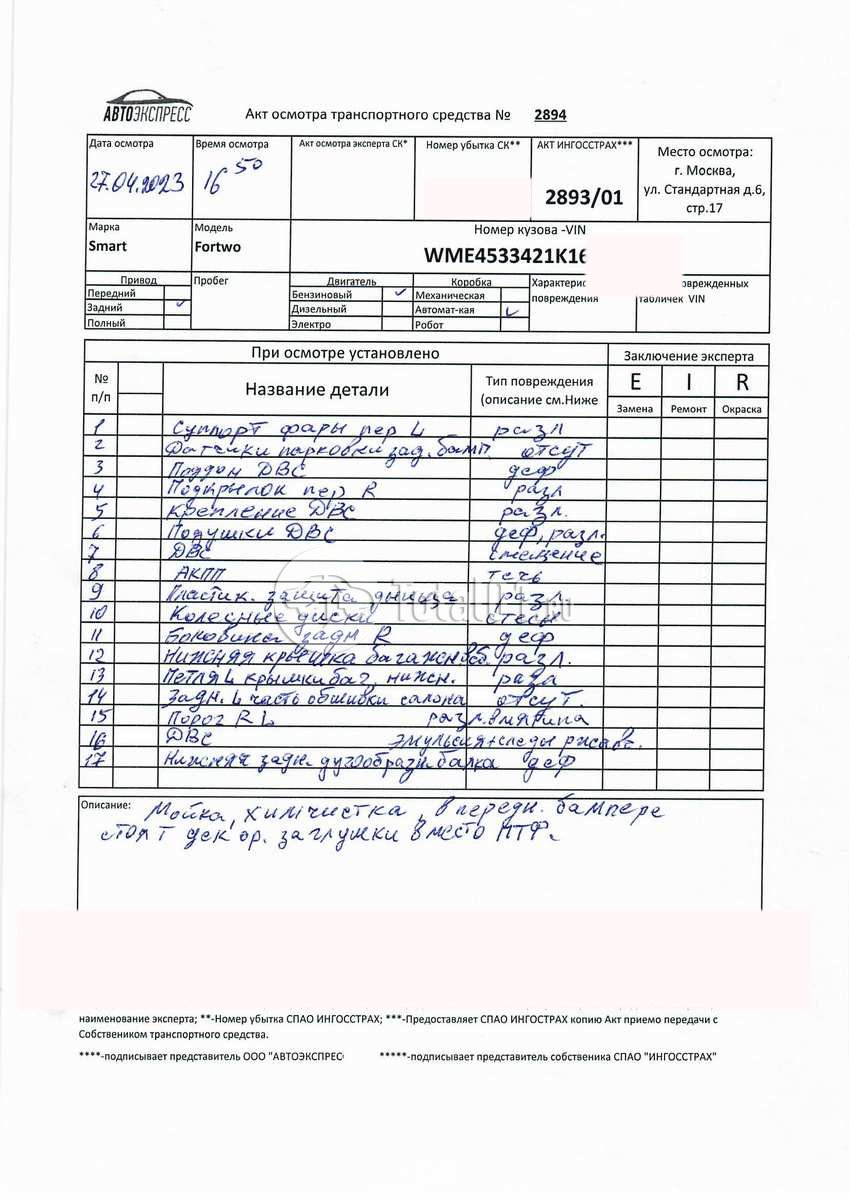 АВТОЭКСПРЕСС
Акт осмотра транспортного средства № 2894
Дата осмотра
27.04.2023
Время осмотра
16 50
Акт осмотра эксперта СК*
Номер убытка СК**
АКТ ИНГОССТРАХ***
2893/01
Место осмотра:
г. Москва,
ул. Стандартная д.6,
стр.17
Марка
Smart
Модель
Fortwo
Номер кузова -VIN
WME4533421K16
Привод
Передний
Задний ✓
Полный
Пробег
Двигатель
Бензиновый ✓
Дизельный
Электро
Коробка
Механическая
Автомат-кая ✓
Робот
Характерис
повреждения
врежденных
табличек VIN
При осмотре установлено
Заключение эксперта
№
п/п
Название детали
Тип повреждения
(описание см.Ниже
E I R
Замена Ремонт Окраска
1 Суппорт фары пер L разл
2 Датчики парковки зад. бамп. отсут
3 Поддон ДВС деф
4 Подкрылок пер R разл
5 Крепление ДВС разл.
6 Подушки ДВС деф, разл.
7 ДВС смещение
8 АКПП течь
9 Пластик. защита днища разл.
10 Колесные диски
11 Боковина задн R деф
12 Нижняя крышка багажн разл.
13 Петля L крышки баг. нижн. разл
14 Задн. L часть обшивки салона отсут.
15 Порог R L разл. вмятина
16 ДВС эмульсия+следы
17 Нижняя задн. дугообразн. балка деф
Описание: Мойка, химчистка, в передн. бампере
стоят декор. заглушки вместо ПТФ.
TotalUT.ru
наименование эксперта; **-Номер убытка СПАО ИНГОССТРАХ; ***-Предоставляет СПАО ИНГОСТРАХ копию Акт приемо передачи с
Собствеником транспортного средства.
****-подписывает представитель ООО "АВТОЭКСПРЕС *****-подписывает представитель собственика СПАО "ИНГОССТРАХ"